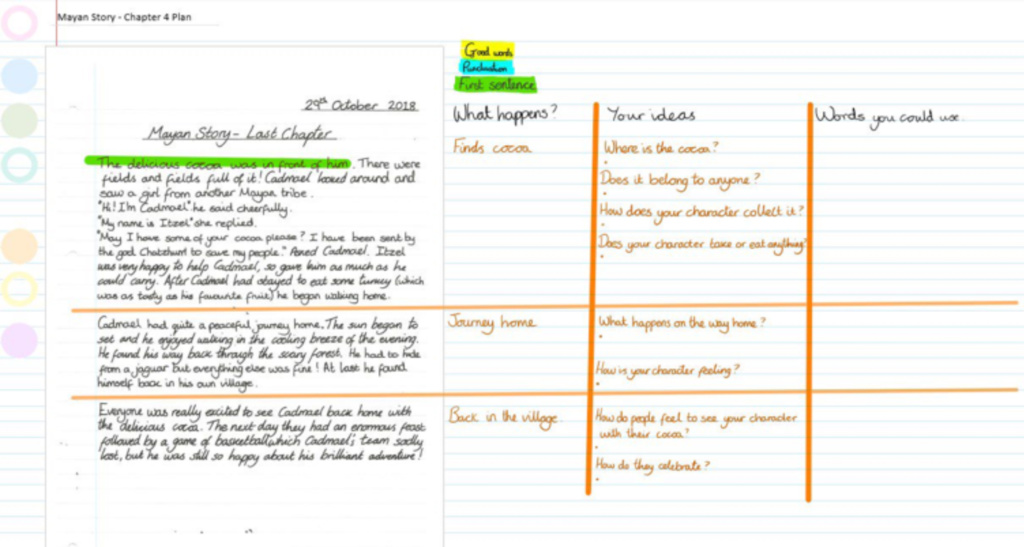 Mayan Story - Chapter 4 Plan
Good words
Punctuation
First sentence
29th October 2018
Mayan Story- Last Chapter
The delicious cocoa was in front of him. There were
fields and fields full of it! Cadmael looked around and
saw a girl from another Mayan tribe.
"Hi! I'm Cadmael" he said cheerfully.
"My name is Itzel" she replied.
"May I have some of your cocoa please? I have been sent by
the god Chatehum to save my people." Cadmael. Itzel
was very happy to help Cadmael, so gave him as much as he
could carry. After Cadmael had stayed to eat some turkey (which
was as tasty as his favourite fruit) he began walking home.
Cadmael had quite a peaceful journey home. The sun began to
set and he enjoyed walking in the cooling breeze of the evening.
He found his way back through the scary forest. He had to hide
from a jaguar but everything else was fine! At last he found
himself back in his own village.
Everyone was really excited to see Cadmael back home with
the delicious cocoa. The next day they had an enormous feast
followed by a game of basketball, which Cadmael's team sadly
lost, but he was still so happy about his brilliant adventure!
What happens?
Your ideas
Words you could use.
Finds cocoa
Where is the cocoa?
Does it belong to anyone?
How does your character collect it?
Does your character take or eat anything?
Journey home
What happens on the way home?
How is your character feeling?
Back in the village.
How do people feel to see your character
with their cocoa?
How do they celebrate?